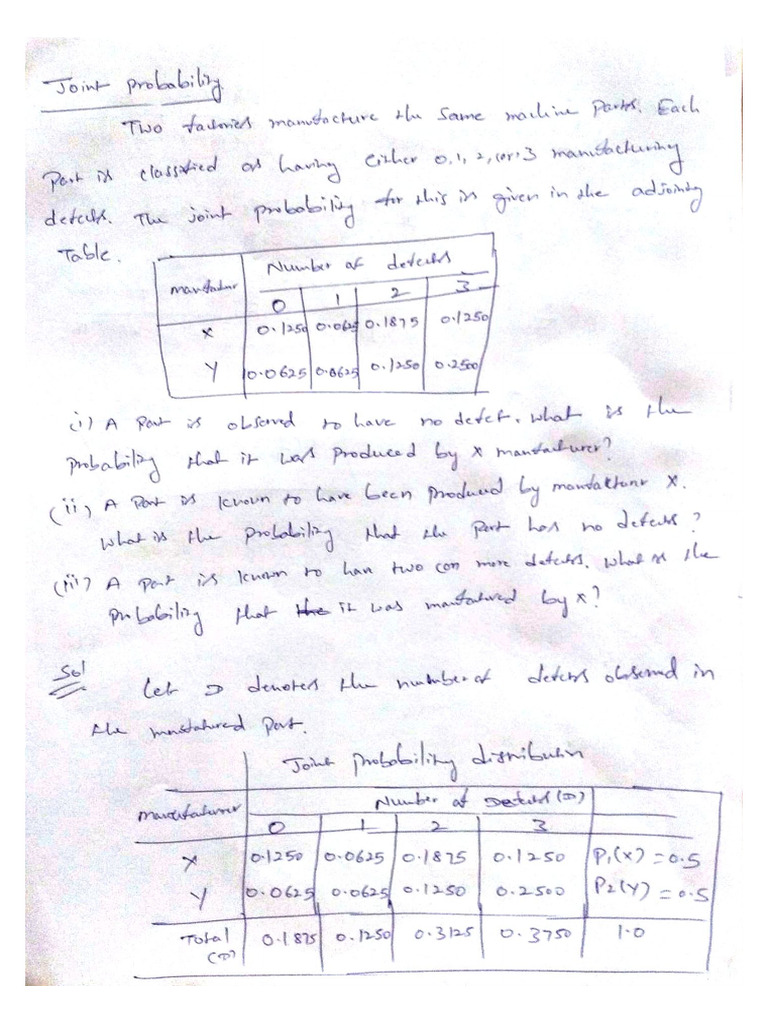 Joint probability
Two factories manufacture the same machine parts. Each
part is classified as having either 0, 1, 2, (or) 3 manufacturing
defects. The joint probability for this is given in the adjoining
Table.
Number of defects
manufatur 0 1 2 3
X 0.1250 0.0625 0.1875 0.1250
Y 0.0625 0.0625 0.1250 0.2500
(i) A part is observed to have no defect. What is the
probability that it was produced by X manufacturer?
(ii) A part is known to have been produced by manufacturer X.
What is the probability that the part has no defects?
(iii) A part is known to have two (or) more defects. What is the
probability that it was manufatured by X?
Sol
Let D denotes the number of defects observed in
the manufatured part.
Joint probability distribution
Number of Defects (D)
manufaturer 0 1 2 3
X 0.1250 0.0625 0.1875 0.1250 P1(X) = 0.5
Y 0.0625 0.0625 0.1250 0.2500 P2(Y) = 0.5
Total (D) 0.1875 0.1250 0.3125 0.3750 1.0